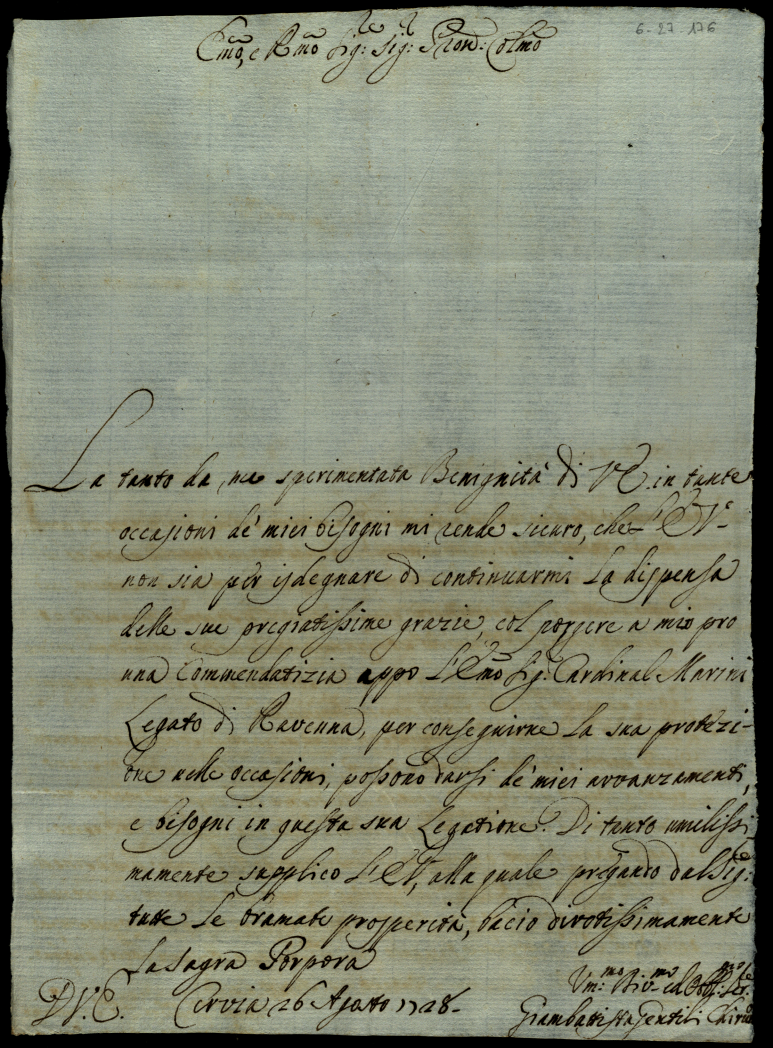 6-27-176
Emo, e Rmo Sig:re Sig:re Pron: Colmo
La tanto da me sperimentata Benignità di V.E. in tante
occasioni de' miei bisogni mi rende sicuro, che l'E.V.
non sia per isdegnare di continuarmi la dispensa
delle sue pregiatissime grazie, col porgere a mio pro
una Commendatizia appo l'Emo Sig: Cardinal Marini
Legato di Ravenna, per conseguirne la sua protezi-
one nelle occasioni, possono darsi de' miei avvanzamenti,
e bisogni in questa sua Legatione. Di tanto umilissi
mamente supplico l'E.V., alla quale pregando dal Sig:re
tutte le bramate prosperità, bacio divotissimamente
la Sagra Porpora
D.V.E. Cervia 26 Agosto 1728-
Um:mo Div:mo ed Obb:mo Ser:re
Giambattista Gentili